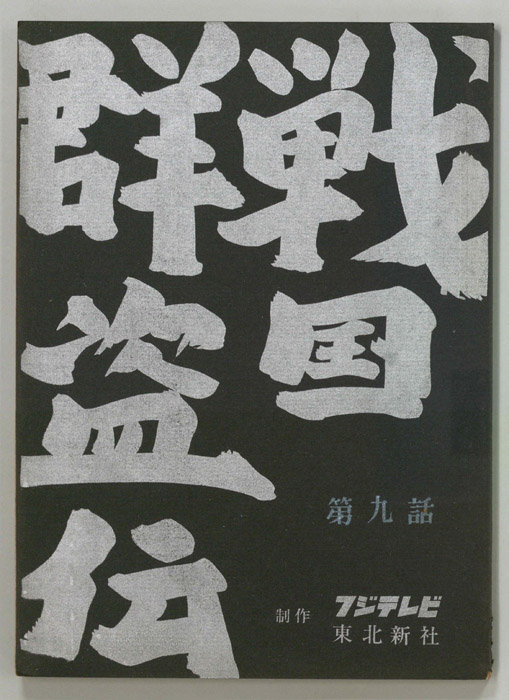 戦国
群盗伝
第九話
制作
フジテレビ
東北新社